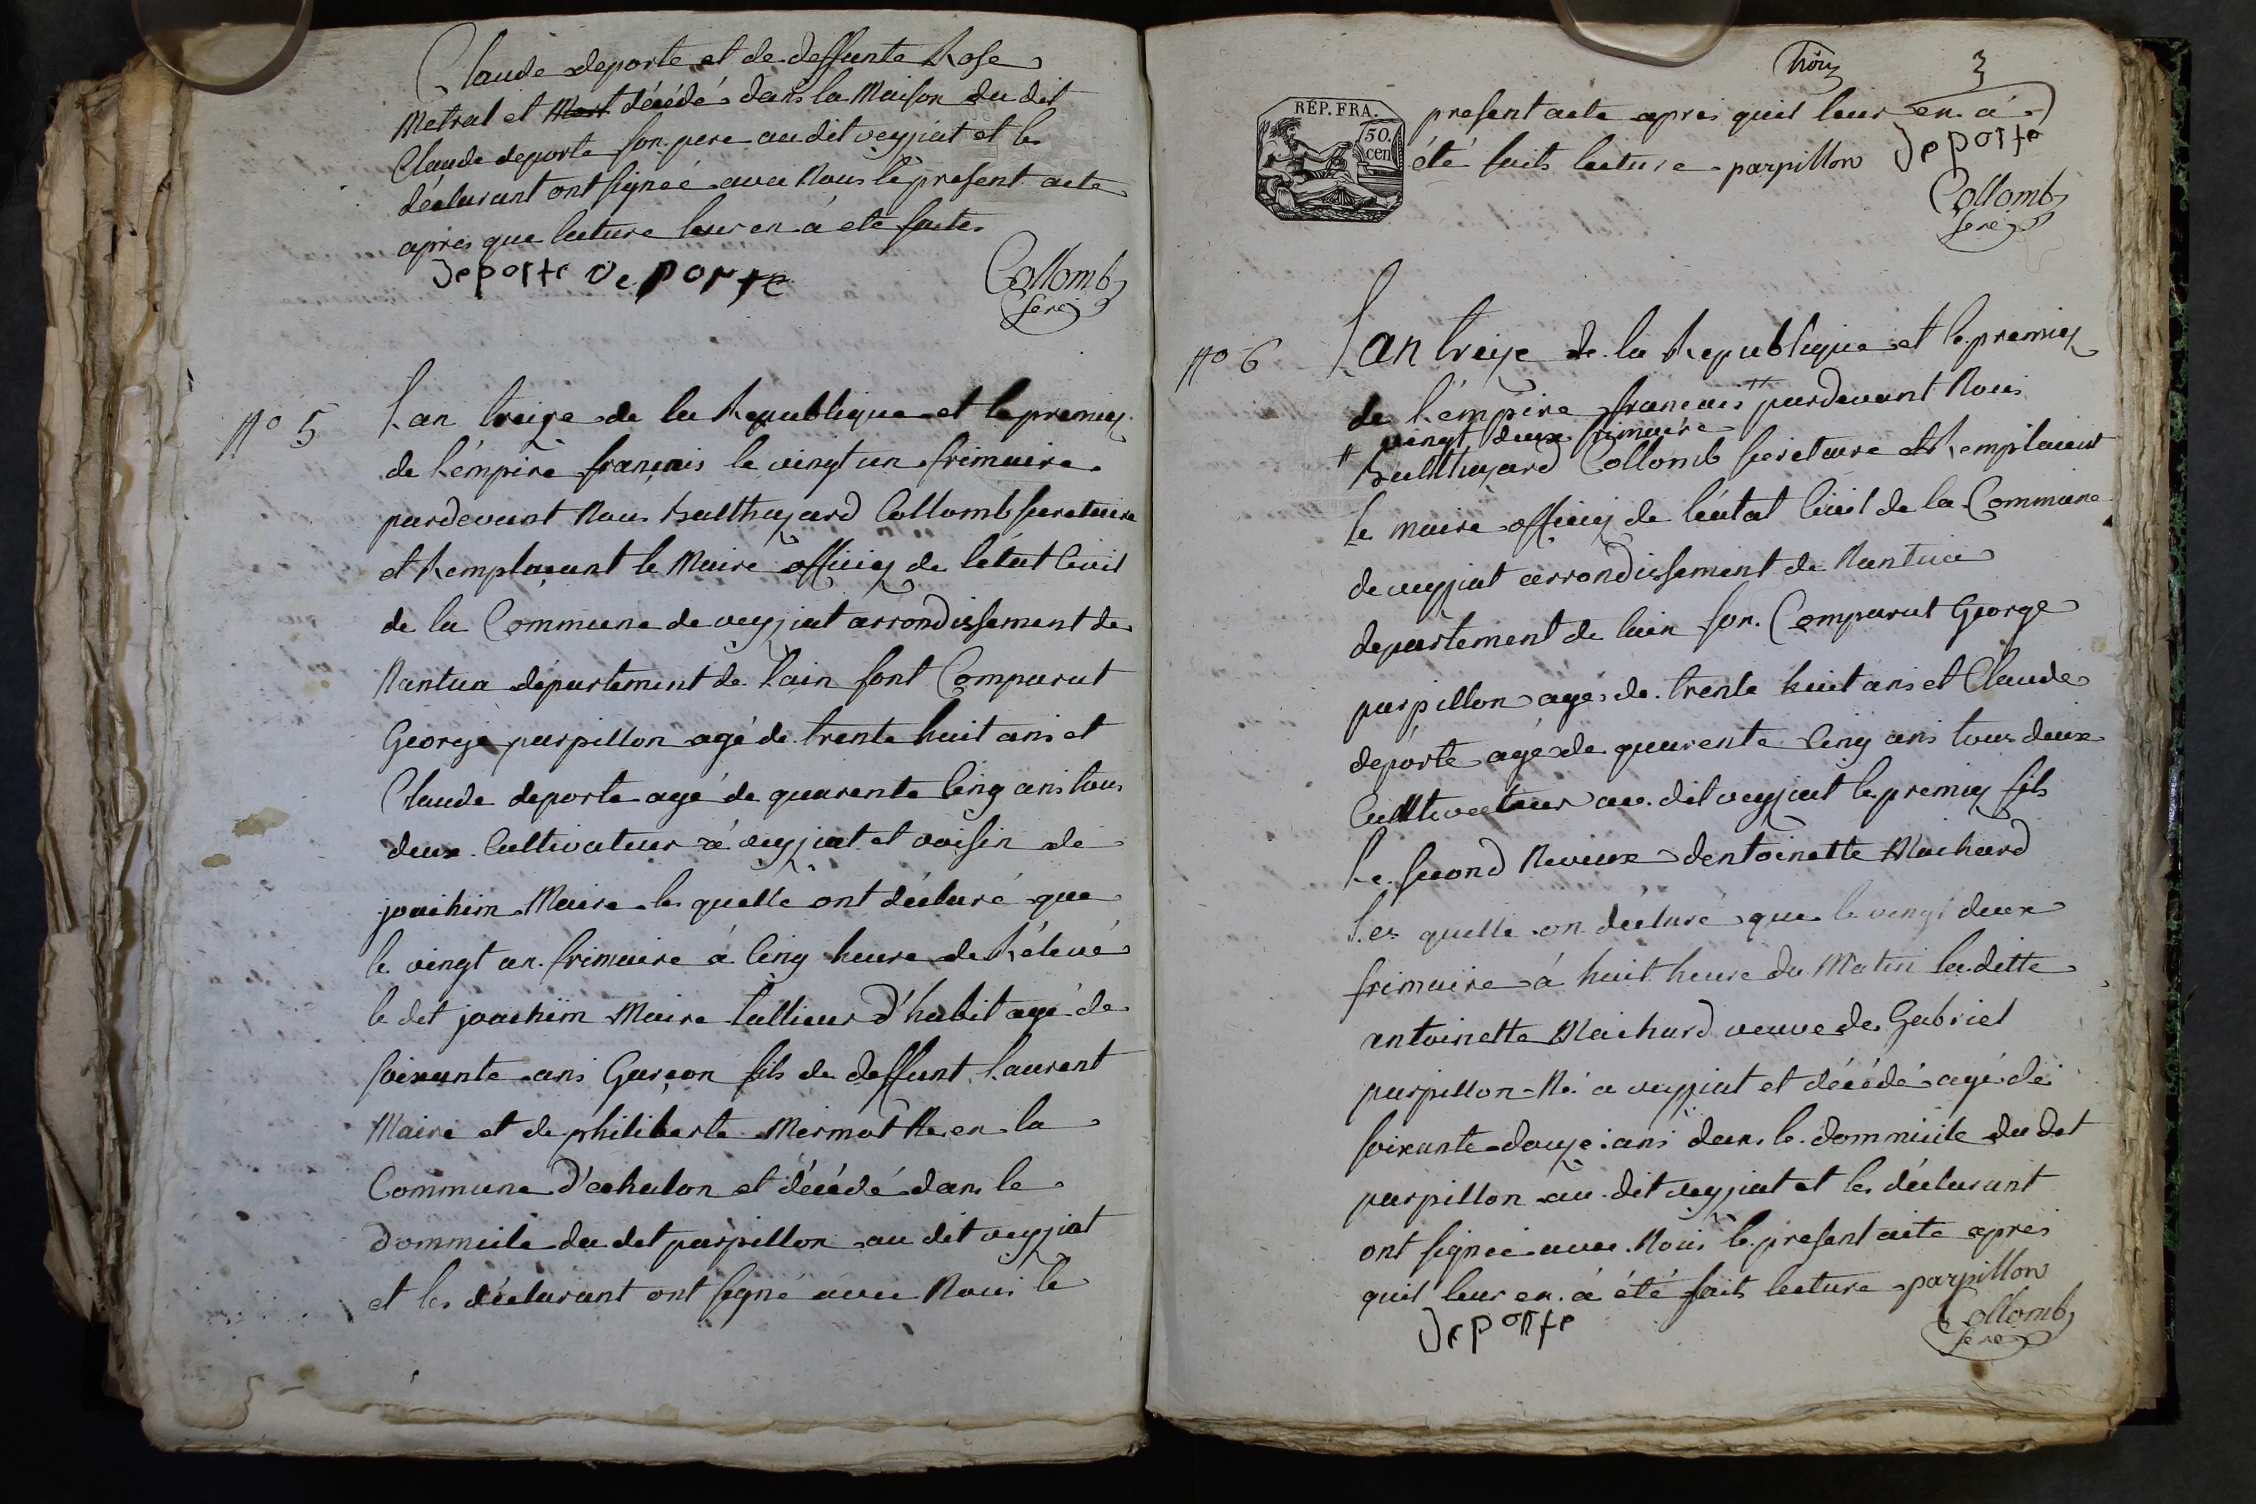 Claude deporte et de deffunte Rose
Metral et Mort décédé dans la Maison du dit
Claude deporte son pere au dit veyziat et les
déclarant ont signéé avec Nous le present acte
apres que lecture leur en á eté faite
deporte deporte
Collomb
sere
No 5
Lan treize de la Republique et le premier
de l'émpire français le vingt un frimaire
pardevant Nous Balthazard Collomb secretaire
et Remplaçant le Maire officier de létat Civil
de la Commune de veyziat arrondissement de
Nantua département de Lain sont Comparut
George parpillon agé de trente huit ans et
Claude deporte agé de quarente Cinq ans tous
deux Cultivateur á veyziat et voisin de
joachim Maire les quelle ont déclaré que
le vingt un frimaire á Cinq heure de Rélevé
le dit joachim Maire tallieur d'habit agé de
soixante ans Garçon fils de deffunt Laurent
Maire et de philiberte Mermet Né en la
Commune d'echalon et décédé dans le
dommicile du dit parpillon au dit veyziat
et les déclarant ont signé avec Nous le
3
RÉP. FRA.
50.
cen
present acte apres quil leur en á
été faits lecture parpillon deporte
Collomb
sere
No 6
Lan treize de la Republique et le premier
de l'émpire français # pardevant Nous
# vingt deux frimaire
Balthazard Collomb secretaire et Remplacent
le maire officier de létat Civil de la Commune
de veyziat arrondissement de Nantua
departement de lain son Comparut George
parpillon agé de trente huit ans et Claude
deporte agé de quarente Cinq ans tous deux
Cultivateur au dit veyziat le premier fils
Le second Neveux dentoinette Machard
Les quelle on déclaré que le vingt deux
frimaire á huit heure du Matin la ditte
antoinette Machard veuve de Gabriel
parpillon Né a veyziat et décédé agé de
soixante douze ans dans le dommicile du dit
parpillon au dit veyziat et les déclarant
ont signéé avec Nous le present acte apres
quil leur en á été faits lecture parpillon
deporte
Collomb
sere